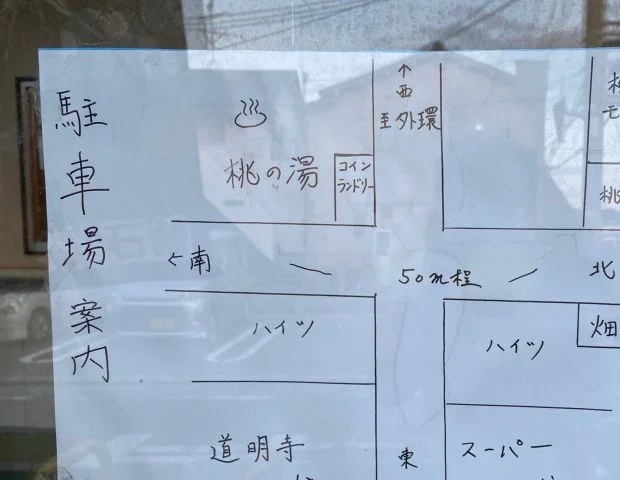 駐車場案内
↑
西
至外環
♨
桃の湯
コイン
ランドリー
桃
←南
50m程
北
ハイツ
ハイツ
畑
道明寺
東
スーパー